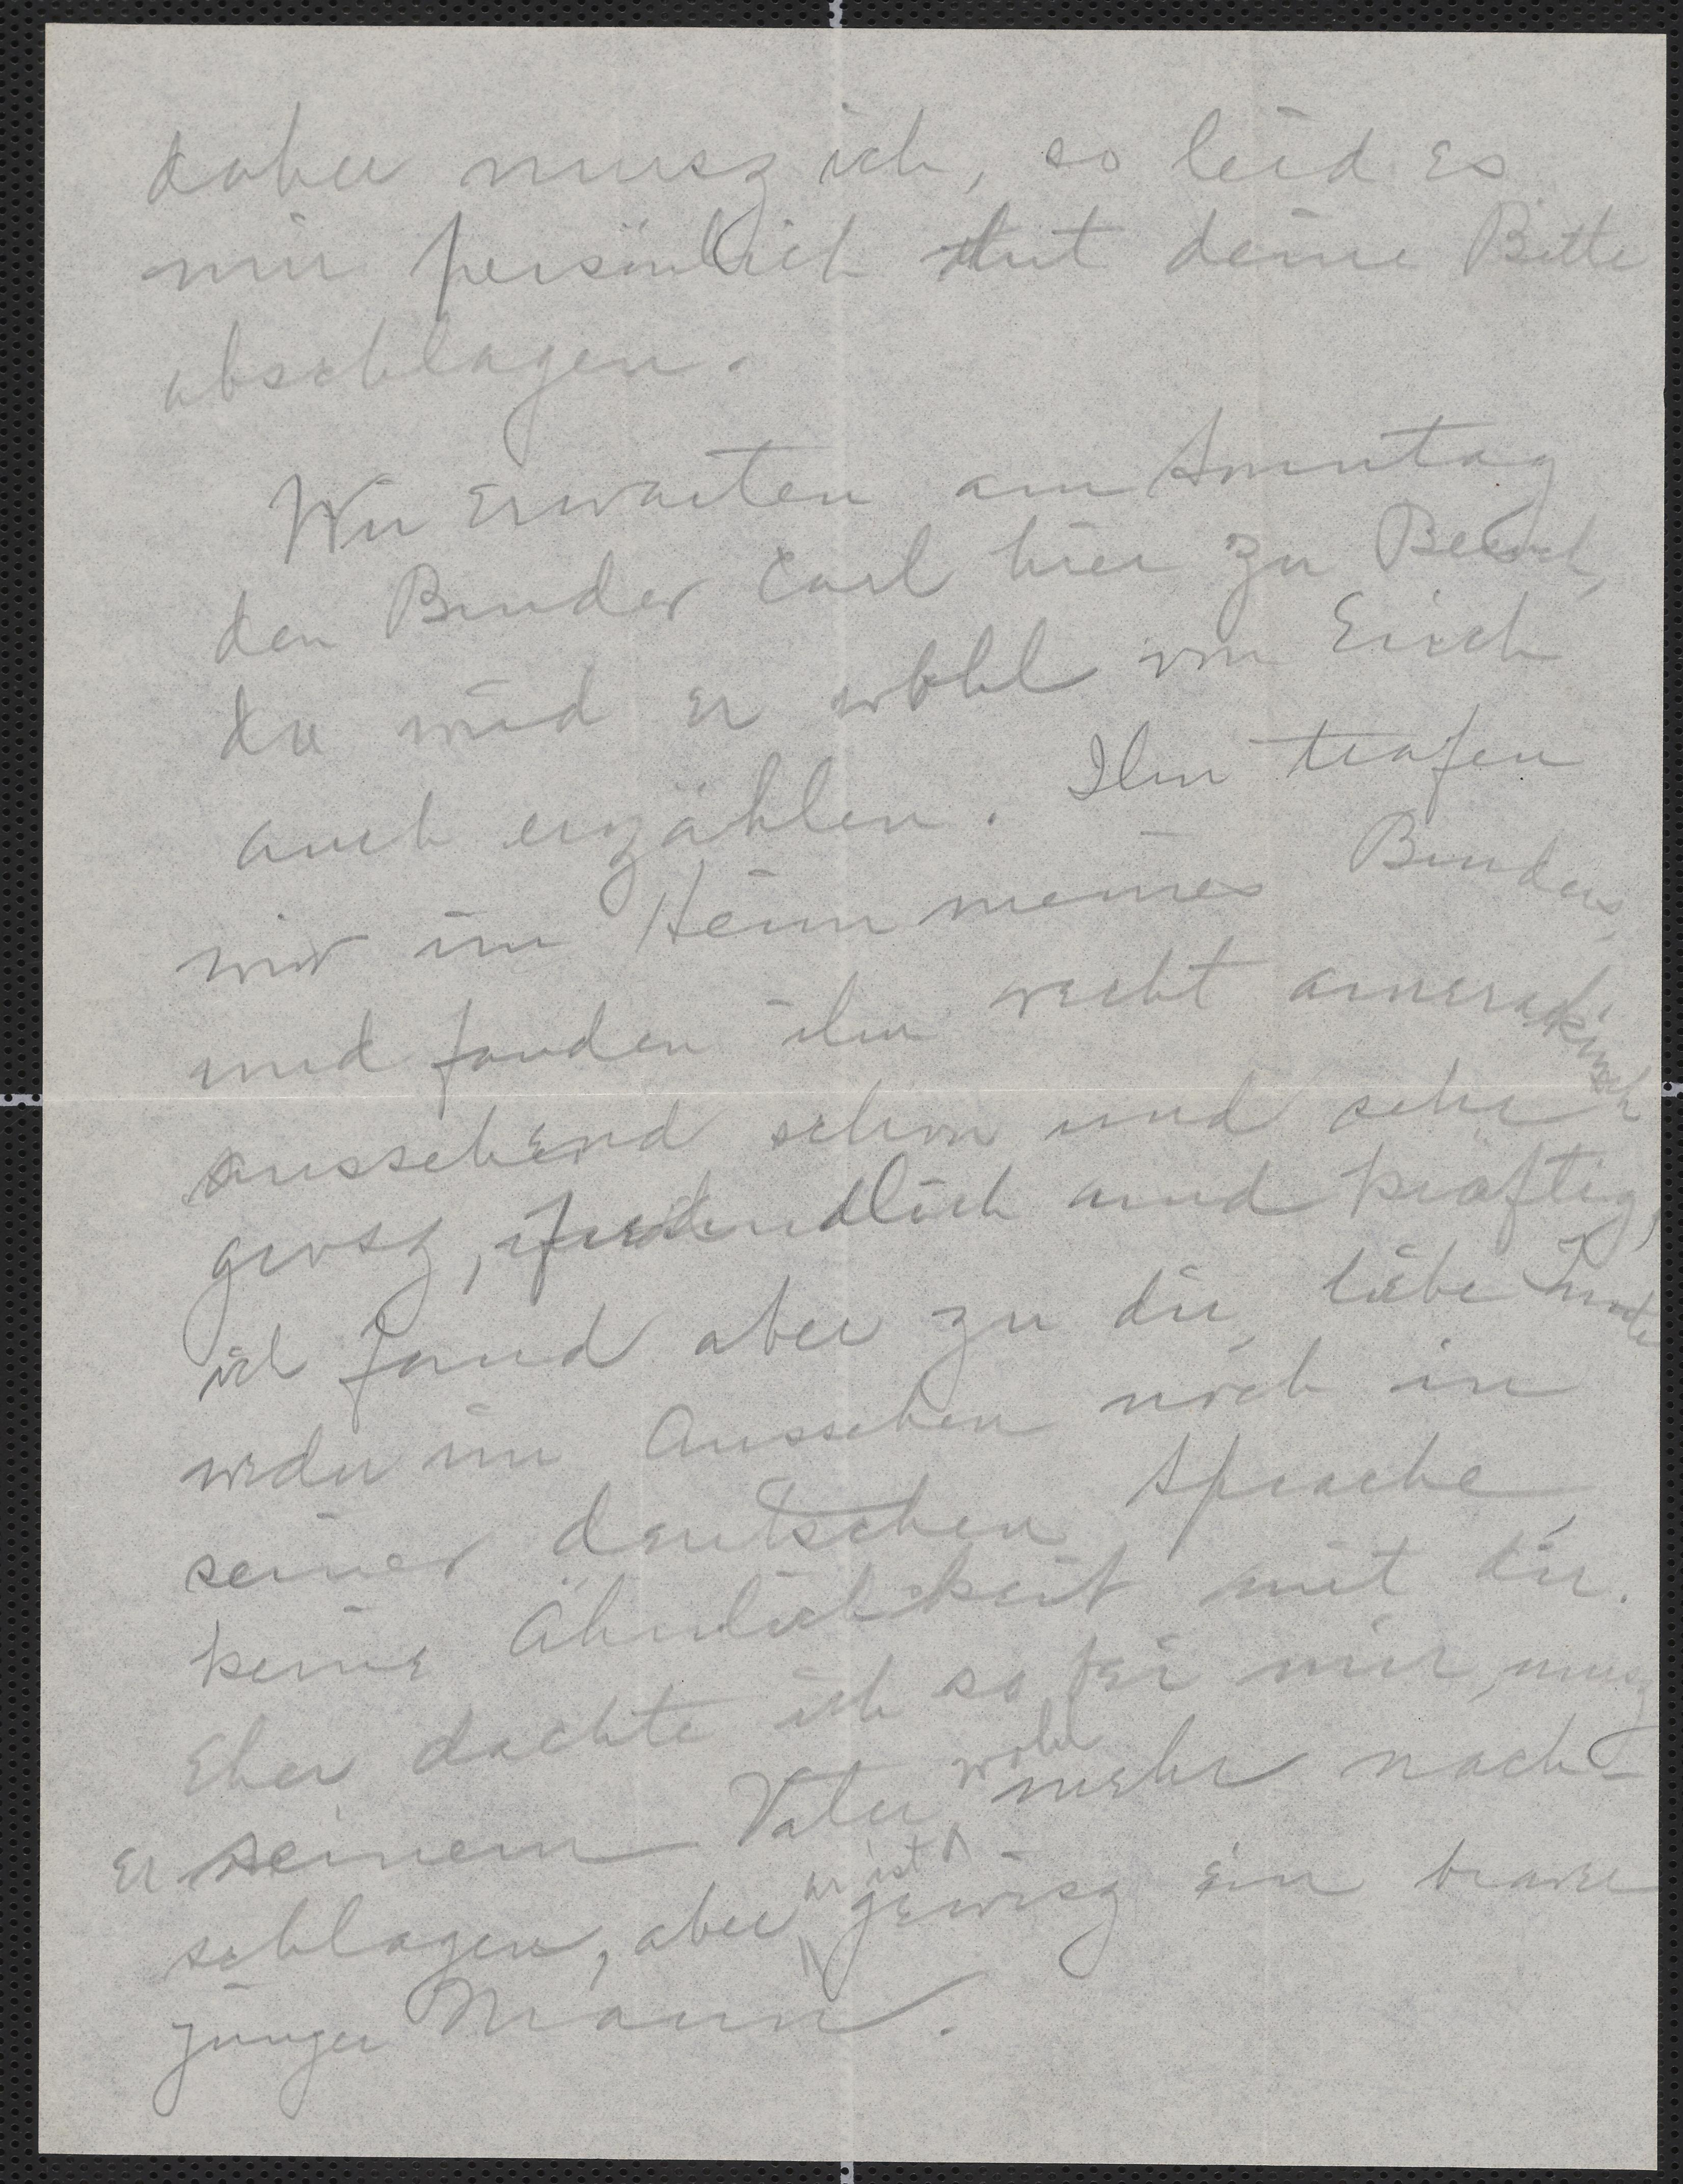 daher musz ich, so leid es
mir persönlich thut deine Bitte
abschlagen.
Wir erwarten am Sonntag
den Bruder Carl hier zu Besuch,
da wird er wohl von Erich
auch erzählen. Ihn trafen
wir im Heim meines Bruders,
und fanden ihn recht amerakinsch
aussehend schon und sehr
grosz, freundlich und kräftig,
ich fand aber zu dir, liebe
weder im Aussehen noch in
seiner deutschen Sprache,
keine Ähnlichkeit mit dir.
Eher dachte ich so bei mir, musz
Er seinem Vater wohl mehr nach-
schlagen, aber er ist gewisz ein braver
junger Mann.